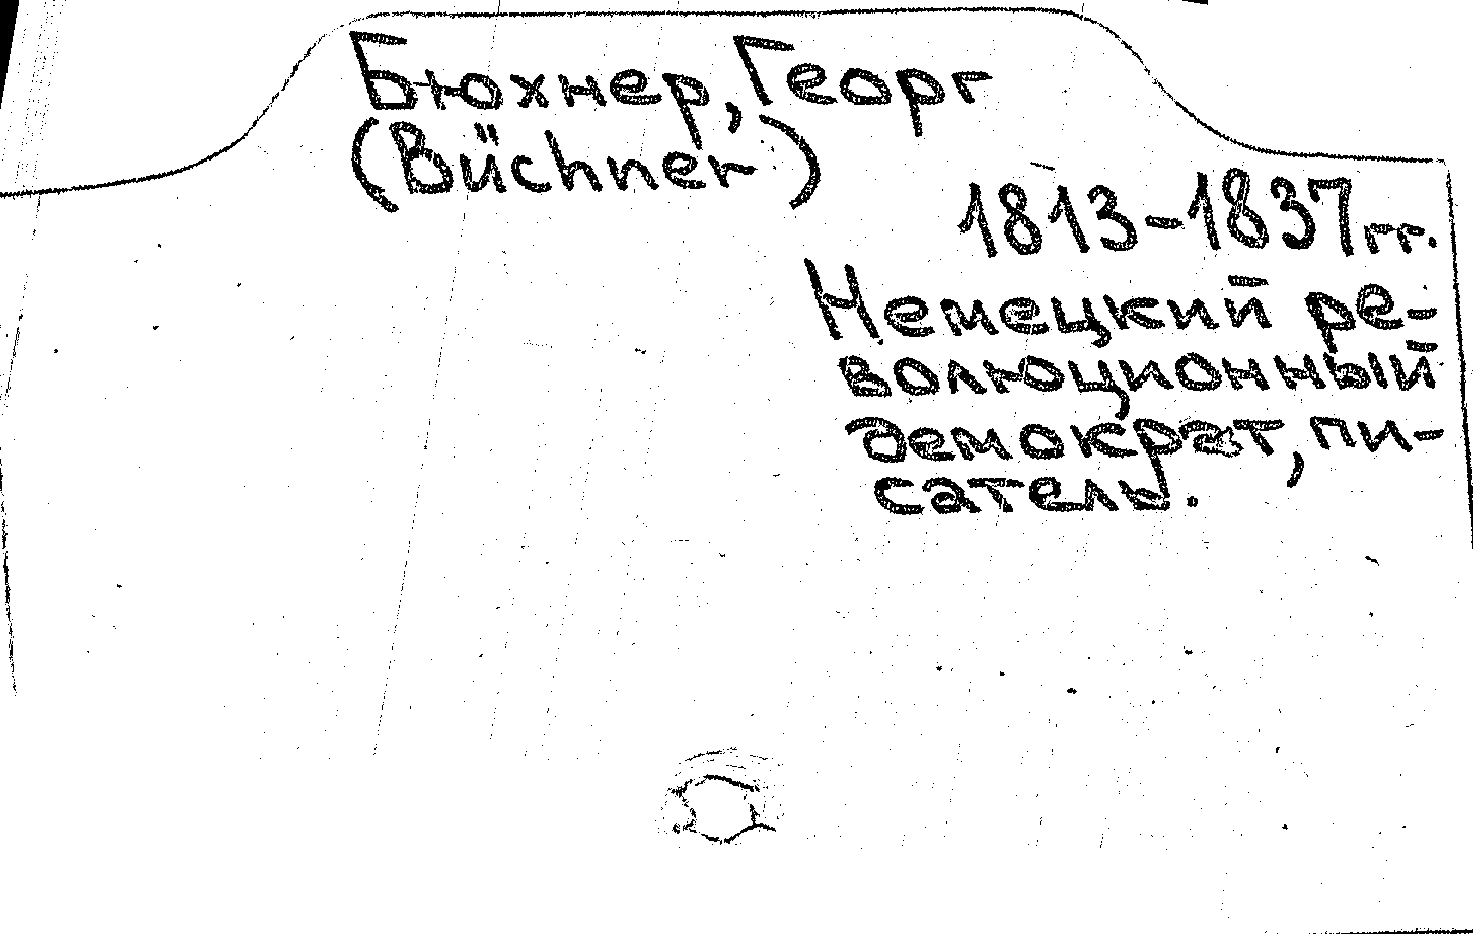 Бюхнер, Георг
(Büchner)
1813-1837гг.
Немецкий ре-
волюционный
демократ, пи-
сатель.